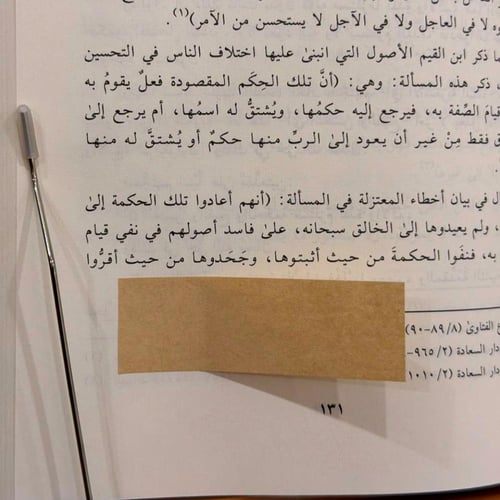 وه لا في العاجل ولا في الآجل لا يستحسن من الآمر)(١).
ما ذكر ابن القيم الأصول التي انبنىٰ عليها اختلاف الناس في التحسين
، ذكر هذه المسألة: وهي: (أنَّ تلك الحِكَم المقصودة فعلٌ يقومُ به
قيامَ الصِّفة به، فيرجع إليه حكمُها، ويُشتقُّ له اسمُها، أم يرجع إلىٰ
ق فقط مِنْ غير أن يعود إلىٰ الربِّ منها حكمٌ أو يُشتقَّ له منها
ل في بيان أخطاء المعتزلة في المسألة: (أنهم أعادوا تلك الحكمة إلىٰ
، ولم يعيدوها إلىٰ الخالق سبحانه، علىٰ فاسد أصولهم في نفي قيام
به، فنفَوا الحكمةَ من حيث أثبتوها، وجَحَدوها من حيث أقرُّوا
ع الفتاوىٰ (٨/ ٨٩-٩٠)
دار السعادة (٢/ ٩٦٥-
دار السعادة (٢/ ١٠١٠
١٣١